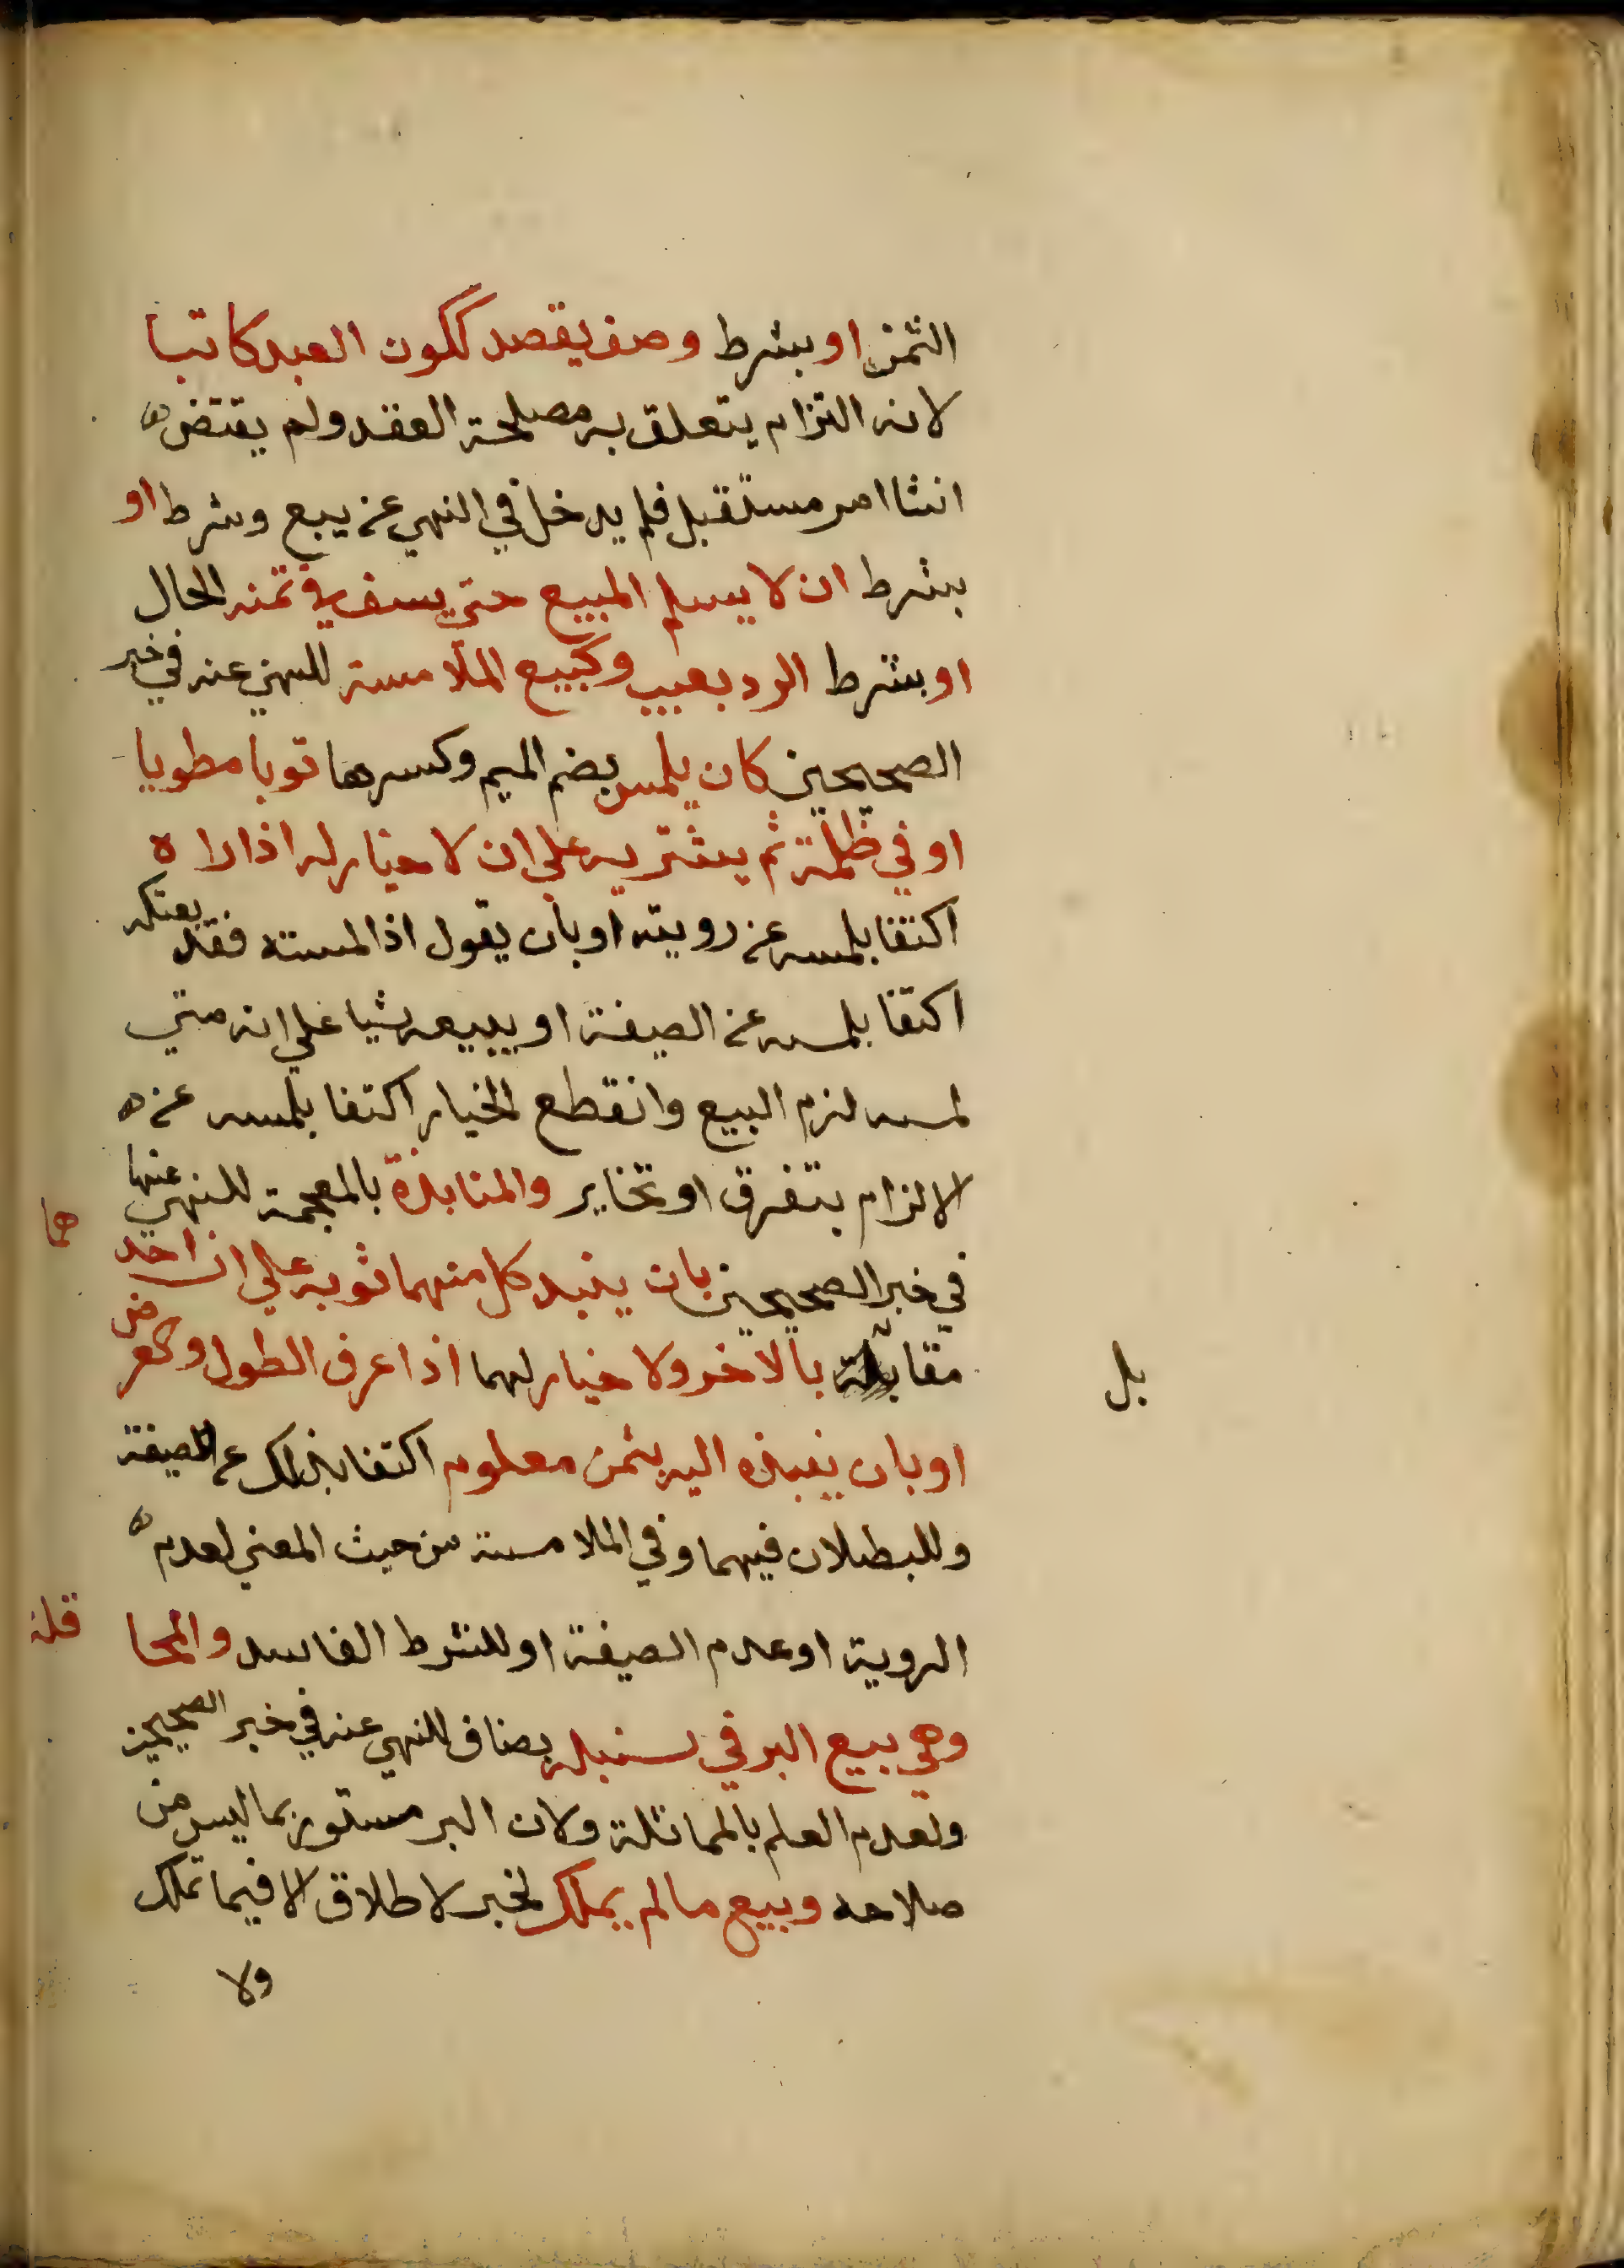 الثمن او بشرط وصف يقصد ككون العبد كاتبا
لانه التزام يتعلق به مصلحة العقد ولم يقتض ه
انشا امر مستقبل فلم يدخل في النهي عن بيع وشرط او
بشرط ان لا يسلم المبيع حتي يستوفي ثمنه الحال
او بشرط الرد بعيب وكبيع الملامسة للنهي عنه في خبر
الصحيحين كان يلمس بضم الميم وكسرها ثوبا مطويا
او في ظلمة ثم يشتريه علي ان لا خيار له اذا راه
اكتفا بلمسه عن رويته او بان يقول اذا لمسته فقد بعتكه
اكتفا بلمسه عن الصيغة او يبيعه شيا علي انه متي
لمسه لزم البيع وانقطع الخيار اكتفا بلمسه عن ه
الالزام بتفرق او تخاير والمنابذة بالمعجمة للنهي عنها
في خبر الصحيحين بان ينبذ كل منهما ثوبه علي ان احد هما
مقابلة بالاخر ولا خيار لهما اذا عرف الطول والعرض
بل
او بان ينبذه اليه بثمن معلوم اكتفا بذلك عن الصيغة
وللبطلان فيهما وفي الملامسة من حيث المعني لعدم ه
الروية او عدم الصيغة او للشرط الفاسد والمحا قلة
وهي بيع البر في سنبله بصاف للنهي عنه في خبر الصحيحين
ولعدم العلم بالمماثلة ولان البر مستور بما ليس من
صلاحه وبيع ما لم يملك لخبر لا طلاق الا فيما تملك
ولا